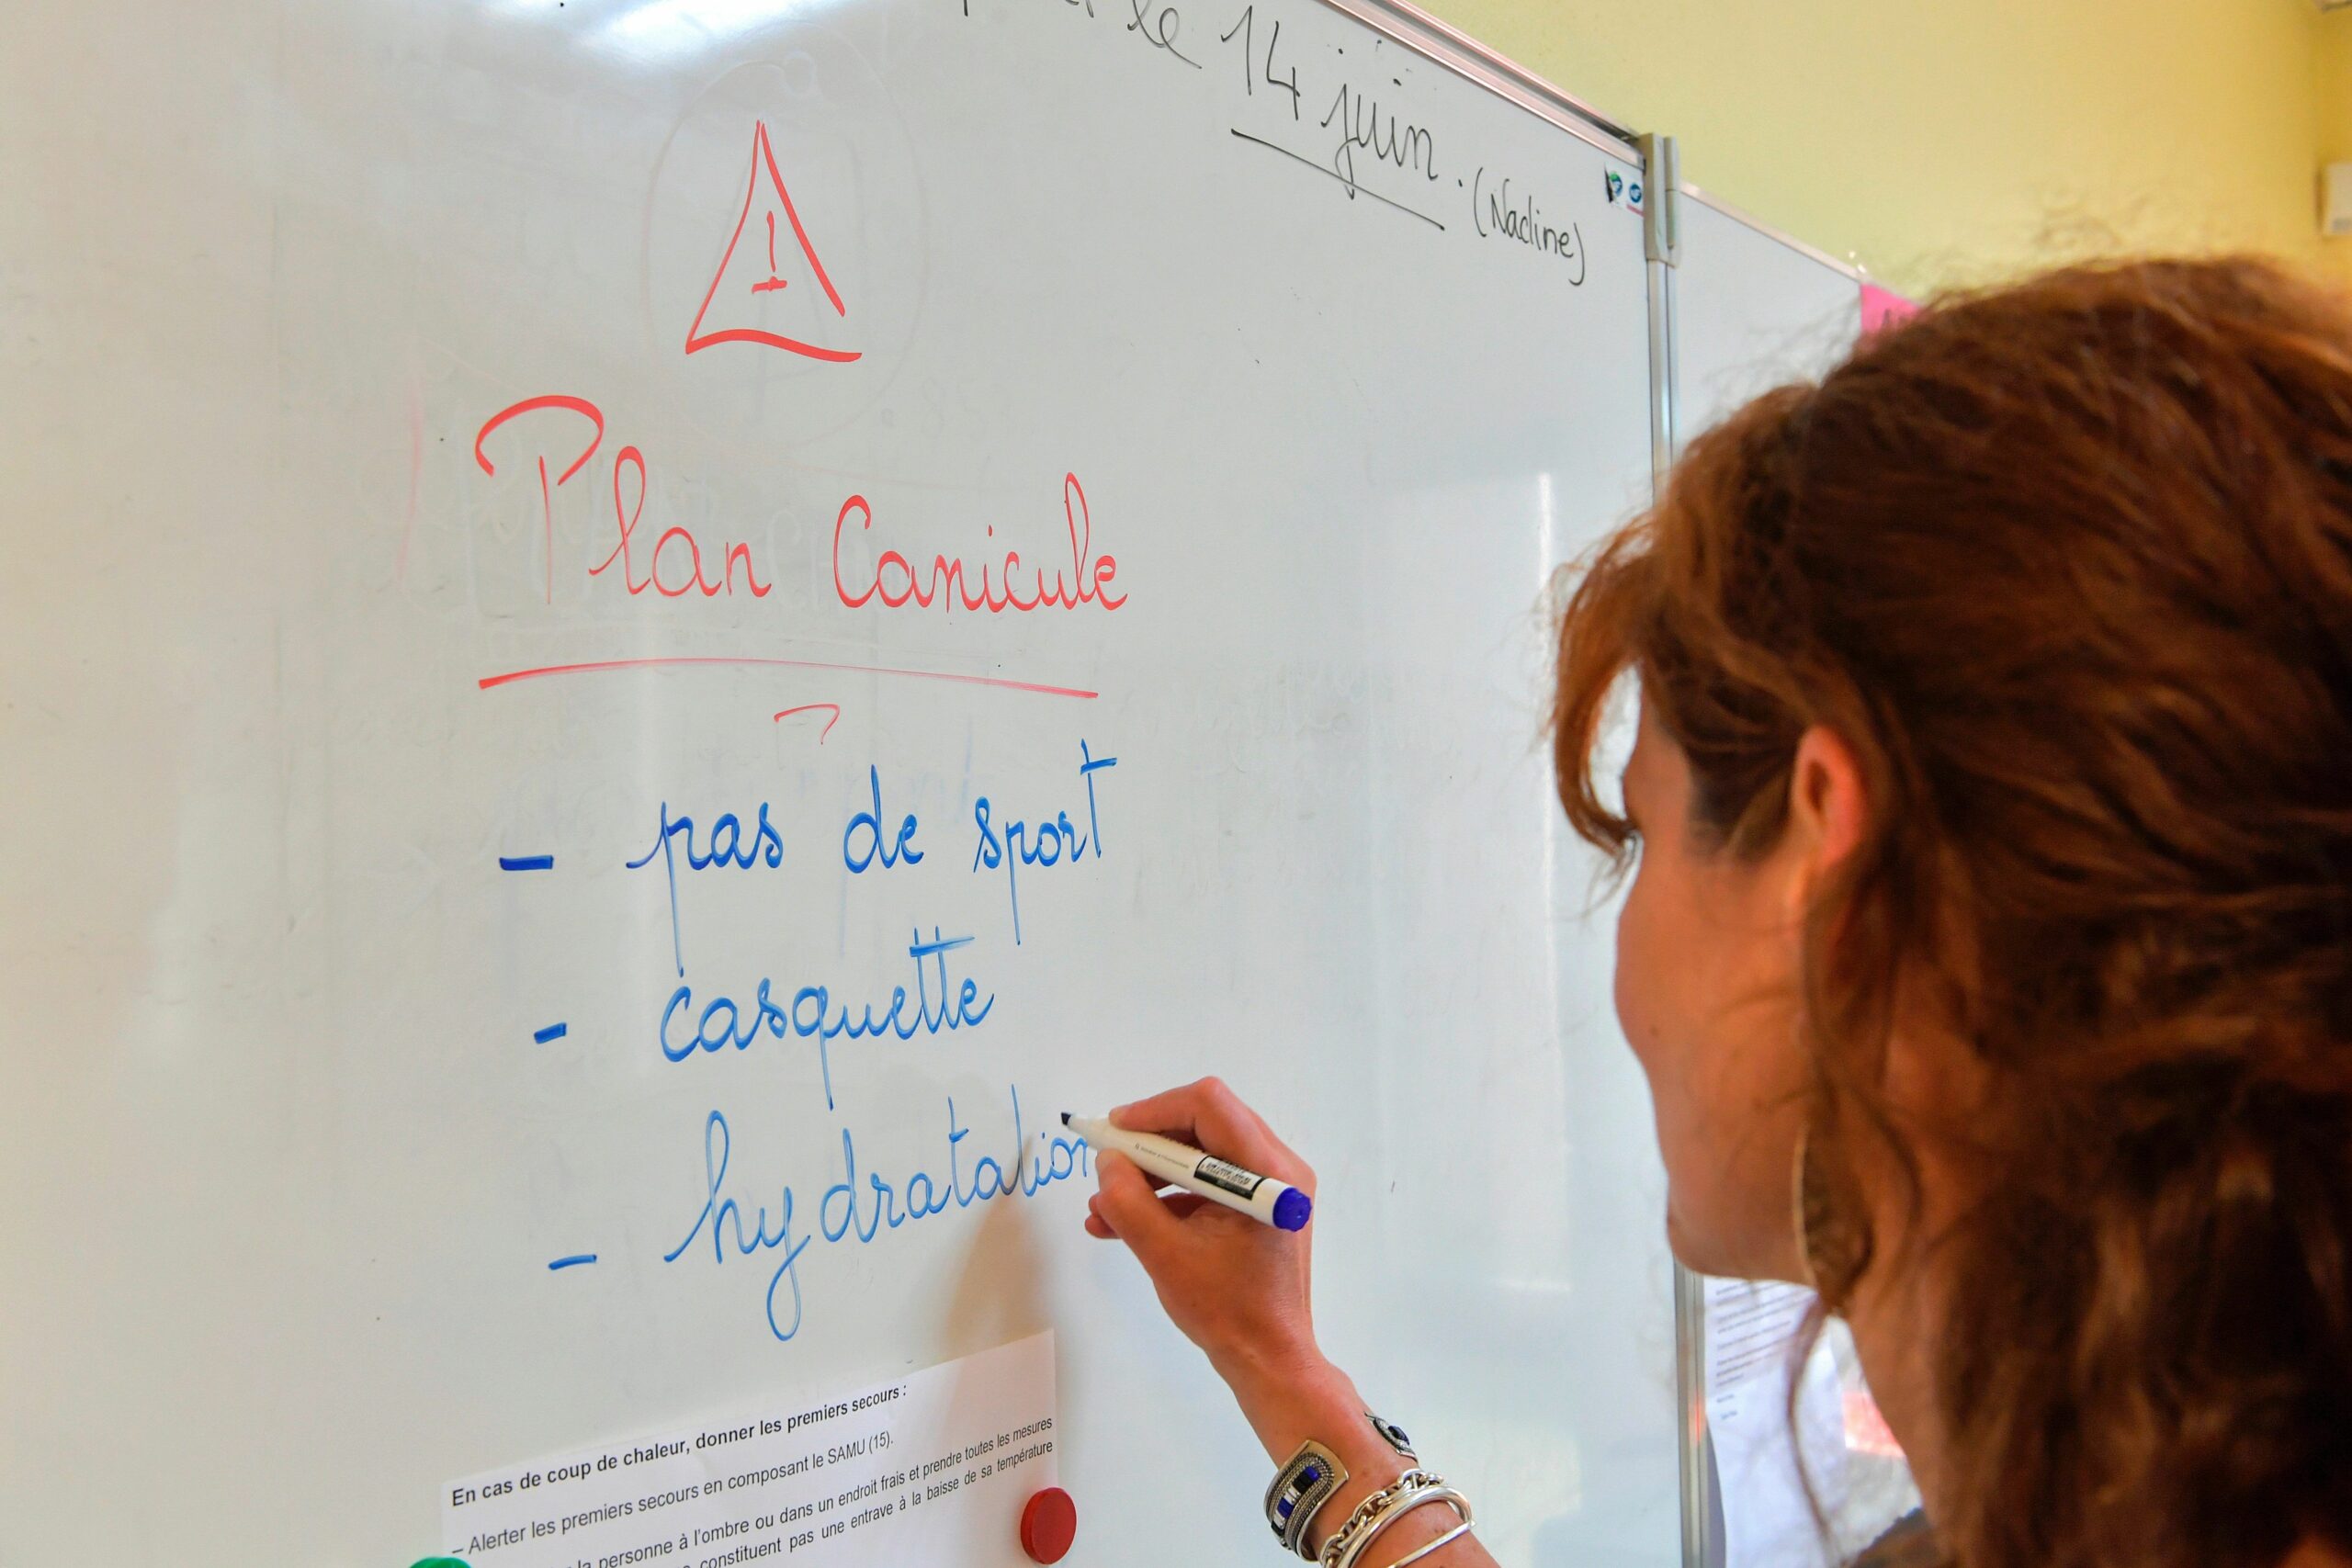 le 14 juin. (Nadine)
!
Plan Canicule
- pas de sport
- casquette
- hydratation
En cas de coup de chaleur, donner les premiers secours :
– Alerter les premiers secours en composant le SAMU (15).
la personne à l'ombre ou dans un endroit frais et prendre toutes les mesures
constituent pas une entrave à la baisse de sa température